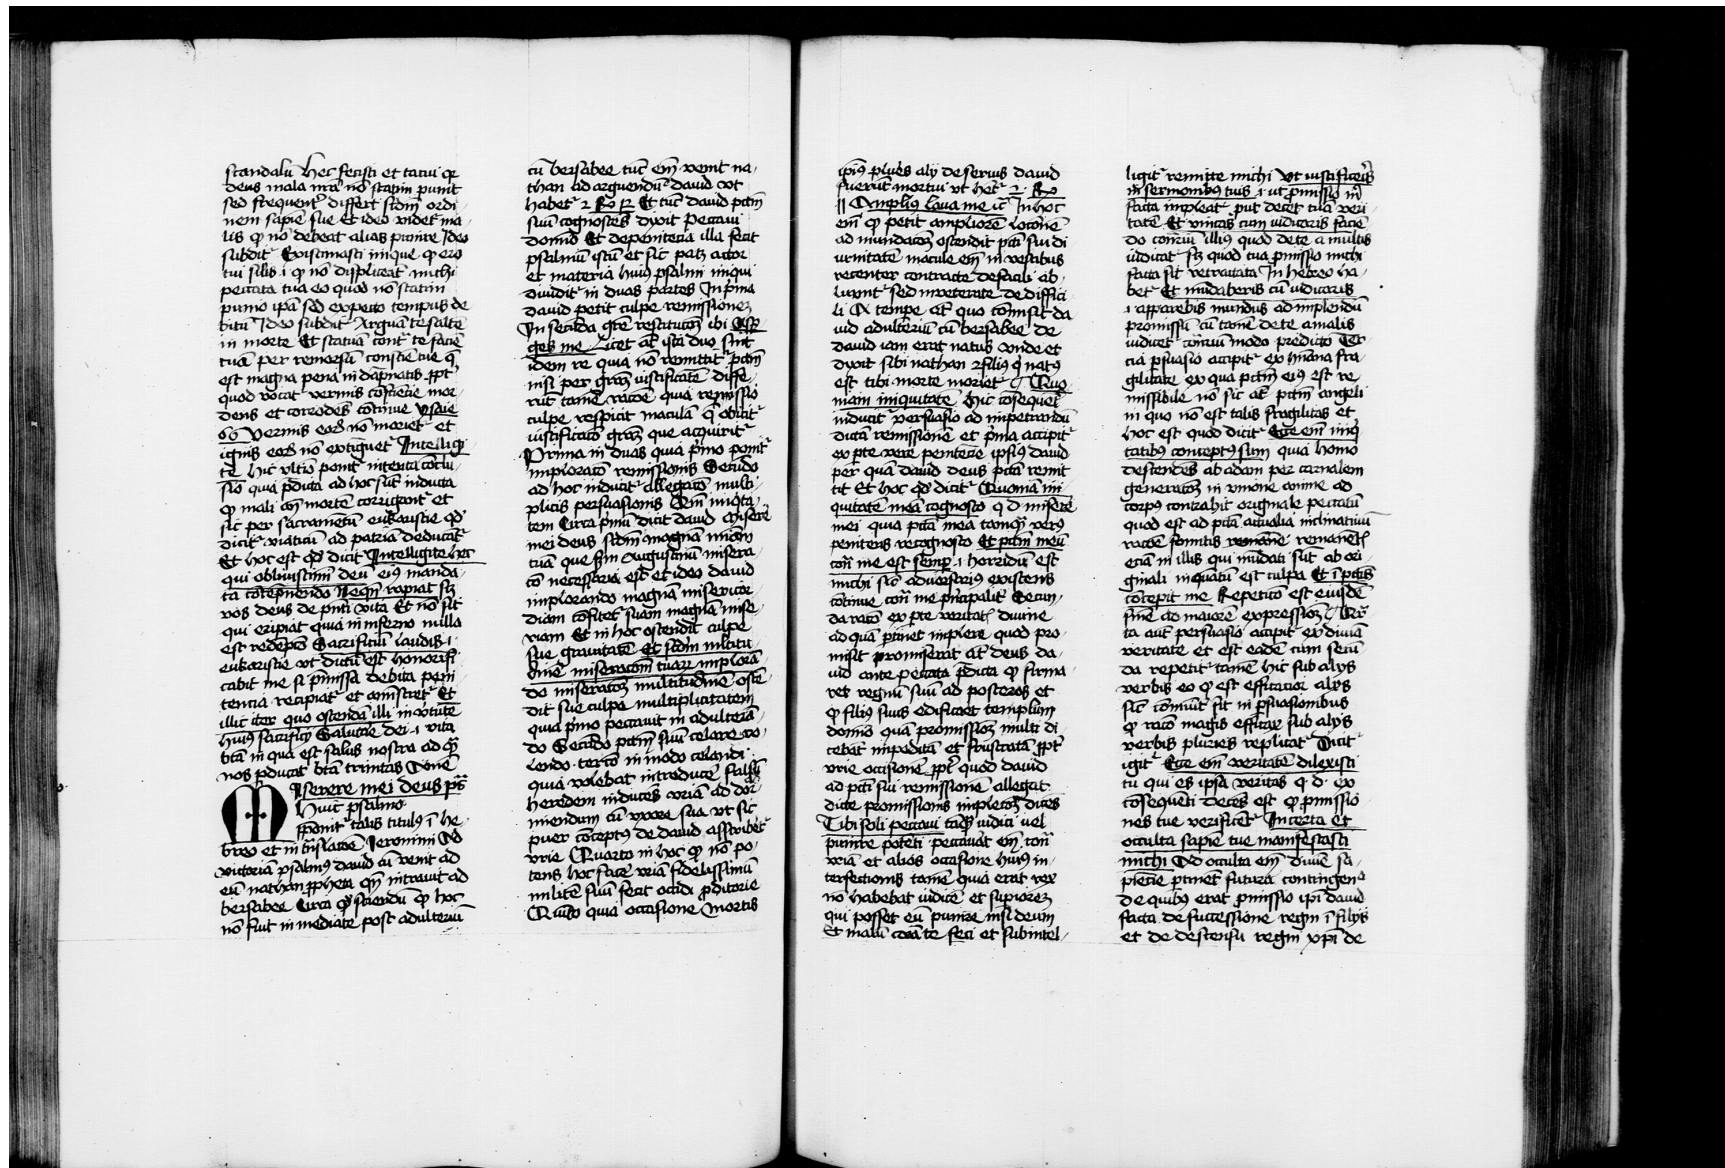 scandalū hec fecisti et tacui qꝛ
deus mala nr̄a nō statim punit
sed frequenter differt scdm ordi-
nem sapiē sue Et ideo videt ma-
lis qꝫ nō debeat alias punire Ideo
subdit Existimasti inique qꝫ ero
tui silis .i. qꝫ nō displiceāt michi
peccata tua eo quod nō statim
punio ipā sed expecto tempus de
bitū Ideo subdit Arguā te saltē
in morte Et statuā contr̄ te faciē
tuā per remorsū conscīe tue q̄
est magna pena in dāpnatis ꝓpt̄
quod vocat᷑ vermis cōsciētie mor-
dens et corrodēs cōtinue ysaie
66 Vermis eoꝝ nō moriet᷑ et
ignis eoꝝ nō extīguet᷑ Intelligi-
te hic vltīo ponit᷑ intenta cōclu-
sio quia p̄dicta ad hoc sūt inducta
qꝫ mali añ mortē corrigant᷑ et
sic per sacramētū eukaristie qd̄
dicit᷑ viaticū ad patriā deducāt᷑
Et hoc est qd̄ dicit Intelligite hec
qui obliuiscimī deū eiꝰ manda-
ta cōtēpnendo Neqn̄ rapiat scꝫ
vos deus de pn̄ti vita Et nō sit
qui eripiat quia in inferno nulla
est redēptō Sacrificiū laudis .i.
eukaristie vt dictū est honorifi-
cabit me si p̄missa debita peni-
tencia recipiat᷑ et ministret᷑ Et
illic iter quo ostendā illi in vtute
huiꝰ sacrificij Salutare dei .i. vita
btā in qua est salus nostra ad q̄
nos ꝑducat btā trinitas Amē
Miserere mei deus ps̄
Huic psalmo
p̄ponit᷑ talis titulus ī he-
breo et in trāslacōe Jeronimi Ad
victoriā psalmus dauid cū venit ad
eū nathan ꝓpheta qn̄ intrauit ad
bersabee Circa qd̄ sciendū qꝫ hoc
nō fuit inmediate post adulteriū
cū bersabee tūc em̄ venit na-
than ad arguendū dauid vt
habet᷑ 2 Rꝫ 12 Et tūc dauid pctm̄
suū cognoscēs dixit Peccaui
domīo Et de penitēcia illa fecit
psalmū istū et sic patꝫ actor
et materia huiꝰ psalmi in qui
diuidit᷑ in duas partes In p̄ma
dauid petit culpe remissionē
In secūda grē restitucōꝫ ibi Asp̄
ges me Licet at̄ ista duo sint
idem re quia nō remittit᷑ pctm̄
nisi per grāꝫ iustificatē diffe-
rūt tamē racōe quia remissio
culpe respicit maculā q̄ abicit᷑
iustificacō grāꝫ que acquirit᷑
Prima in duas quia p̄mo ponit᷑
imploracō remissionis Secūdo
ad hoc inducit᷑ allegacō multi-
plicis persuasionis Qm̄ iniqta-
tem Circa p̄mū dicit dauid Miserē
mei deus scdm magnā miam̄
tuā que scdm Augustinū misera-
cō necessaria est et ideo dauid
implorando magnā misericor-
diam cōfitet᷑ suam magnā mise-
riam Et in hoc ostendit culpe
sue grauitatē Et scdm mltitu-
dinē miseracōm tuaꝝ implorā-
do miseracōꝫ multitudinē ostē-
dit sue culpe multiplicitatem
quia p̄mo peccauit in adulterā-
do Secūdo pctm̄ suū celare vo-
lendo tercō in modo celandi
quia volebat introducē falsū
heredem inducēs vriā ad dor-
miendum cū vxore sua vt sic
puer cōceptꝰ de dauid asscribet᷑
vrie Quarto in hoc qꝫ nō po-
tens hoc facē vriā fidelissimū
militē suū fecit occidi ꝓditorie
Quīto quia occasione mortis
ipiꝰ plures alij de seruis dauid
fuerūt mortui vt het᷑ 2 Rꝫ
Amplius laua me ic̄ In hoc
em̄ qꝫ petit ampliorē locōnē
ad mundacōꝫ ostendit pcti sui di
uturnitatē macule em̄ in vestibus
recenter contracte de facili ab-
luunt᷑ sed inueterate de diffici
li A tempe at̄ quo cōmisit da
uid adulteriū cū bersabee de
dauid iam erat natus vnde et
dixit sibi nathan filiꝰ q̄ natꝰ
est tibi morte moriet᷑ Quo-
niam iniquitatē hic cōsequet᷑
inducit᷑ persuasio ad impetrandū
dictā remissionē et p̄ma accipit᷑
ex pte vere penitēcie ipsiꝰ dauid
per quā dauid deus pctā remit
tit Et hoc qd̄ dicit᷑ Quoniā ini
quitatē meā cognosco q d miserē
mei quia pctā mea tamqꝫ verꝰ
penitens recognosco Et pctm̄ meū
con̄ me est semp̄ .i. horridū est
michi sic aduersariꝰ existens
cōtinue con̄ me p̄ncipalit᷑ Secun-
da racō ex pte veritatꝭ diuine
ad quā ptinet implere quod pro-
misit promiserat at̄ deus da-
uid ante peccata p̄dicta qꝫ firma-
ret regnū suū ad posteros et
qꝫ filiꝰ suus edificaret templum
domīo quā promissiōꝫ multi di-
cebāt impeditā et frustratā ꝓpt̄
vrie occisionē ꝓpt̄ quod dauid
ad pcti sui remissionē allegat
dicte promissionis impleciōꝫ dicēs
Tibi soli peccaui tāqꝫ iudici vel
punire potēti peccauāt em̄ con̄
vriā et alios occasione huiꝰ in-
terfectionis tamē quia erat rex
nō habebat iudicē et supiorē
qui posset eū punire nisi deum
Et malū corā te feci et subintel-
ligit᷑ remitte michi Vt iustificeris
in sermonibꝰ tuis .i. vt p̄missio m̄
facta impleat᷑ put decet tuā veri
tatē Et vincas cum iudicaris faciē
do con̄riū illiꝰ quod de te a multis
iudicat᷑ scꝫ quod tua p̄missio michi
facta sit retractata In hebreo ha-
bet᷑ Et mūdaberis cū iudicaris
.i. apparebis mundus ad implendū
promissū cū tamē de te a malis
iudicet᷑ con̄riū modo predicto Ter-
cia p̄suasio accipit᷑ ex hūana fra-
gilitate ex qua pctm̄ eiꝰ est re-
missibile nō sic at̄ pctm̄ angeli
in quo nō est talis fragilitas et
hoc est quod dicit Ecce em̄ iniq̄
tatibꝰ conceptꝰ sum quia homo
descendēs ab adam per carnalem
generacōꝫ in vnione anime ad
corpꝰ contrahit originale peccatū
quod est ad pctā actualia inclinatiuū
racōe fomitis remanētꝭ
eciā in illis qui mūdati sūt ab ori-
ginali inquātū est culpa Et ī pctīs
cōcepit me Repeticō est eiusdē
snīe ad maiorē expressiōꝫ Qr̄
ta aut̄ persuasio accipit᷑ ex diuina
veritate et est eadē cum secū
da repetit᷑ tamē hic sub alijs
verbis eo qꝫ est efficacior alijs
sic cōmūit᷑ fit in p̄suasionibus
qꝫ racō magis efficax sub alijs
verbis pluries replicat᷑ Dicit
igit᷑ Ecce em̄ veritatē dilexisti
tu qui es ipsa veritas q d. ex
cōsequēti decēs est qꝫ p̄missio-
nes tue verificēt᷑ Incerta et
occulta sapiē tue manifestasti
michi Ad occulta em̄ diuīe sa-
piēcie ptinēt futura contingencia
de quibꝰ erat p̄missio ipi dauid
facta de successione regni ī filijs
et de descensu regni xpi de